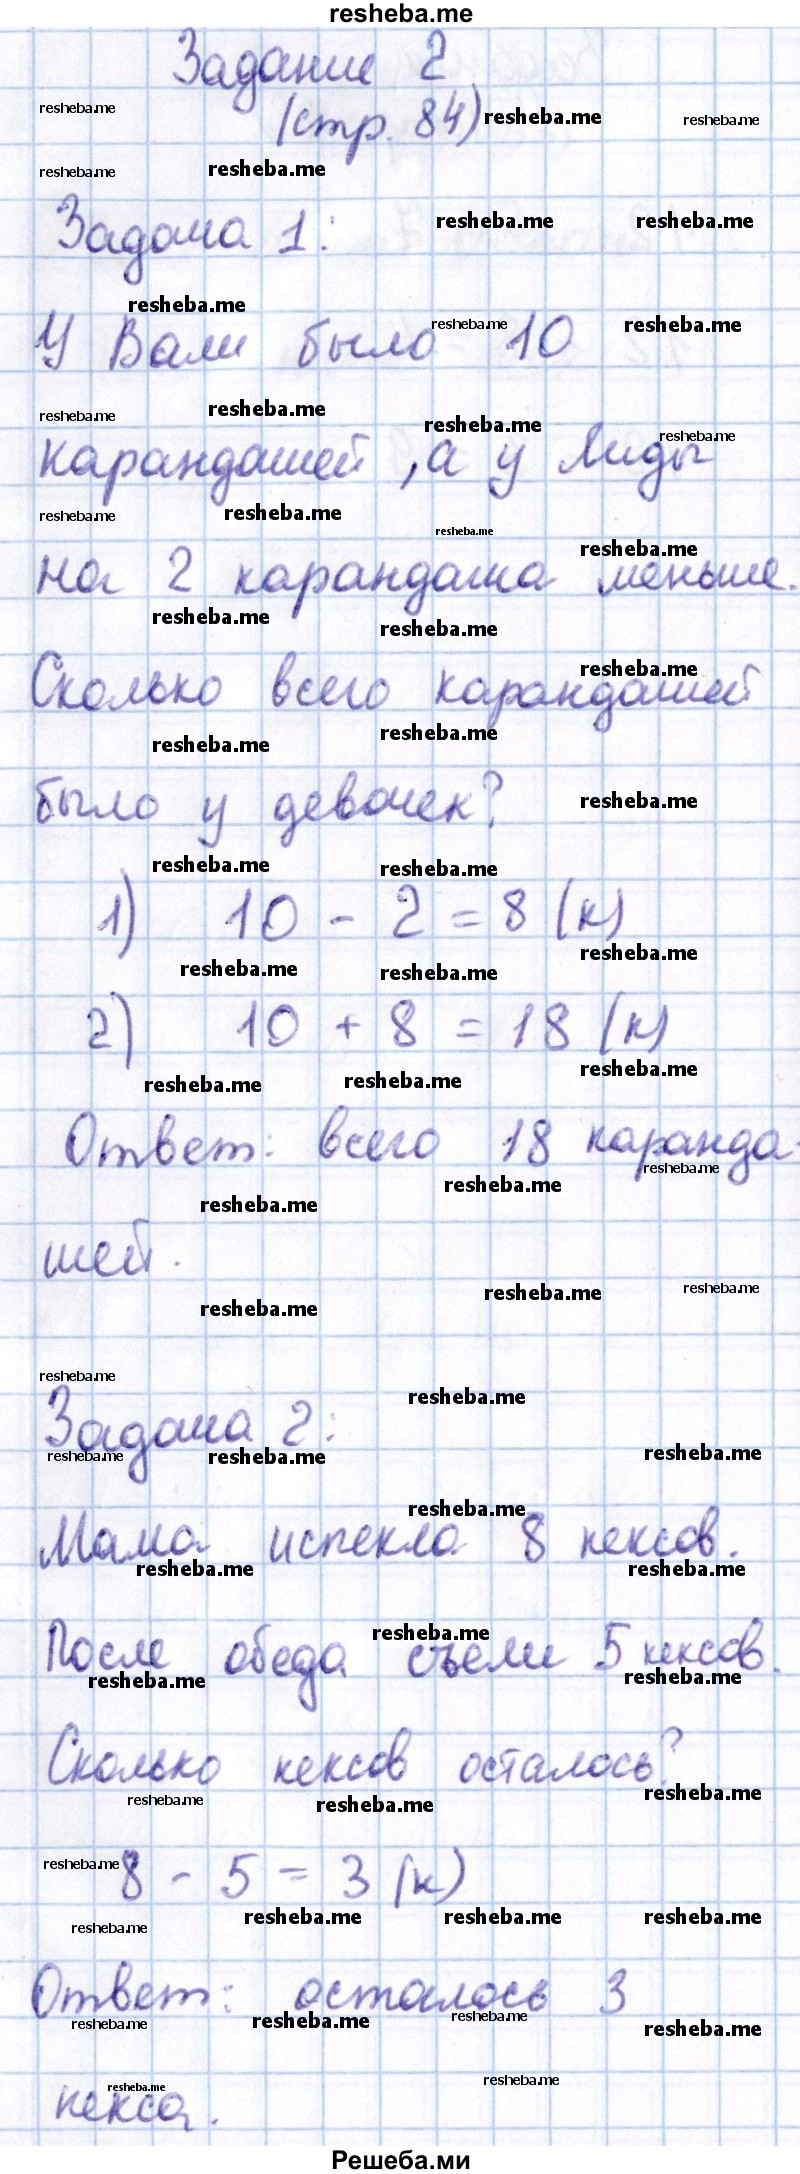 resheba.me
Задание 2
(стр. 84)
Задача 1:
У Вали было 10
карандашей, а у Лиды
на 2 карандаша меньше.
Сколько всего карандашей
было у девочек?
1) 10 - 2 = 8 (к)
2) 10 + 8 = 18 (к)
Ответ: всего 18 каранда-
шей.
Задача 2:
Мама испекла 8 кексов.
После обеда съели 5 кексов.
Сколько кексов осталось?
8 - 5 = 3 (к)
Ответ: осталось 3
кекса.
Решеба.ми